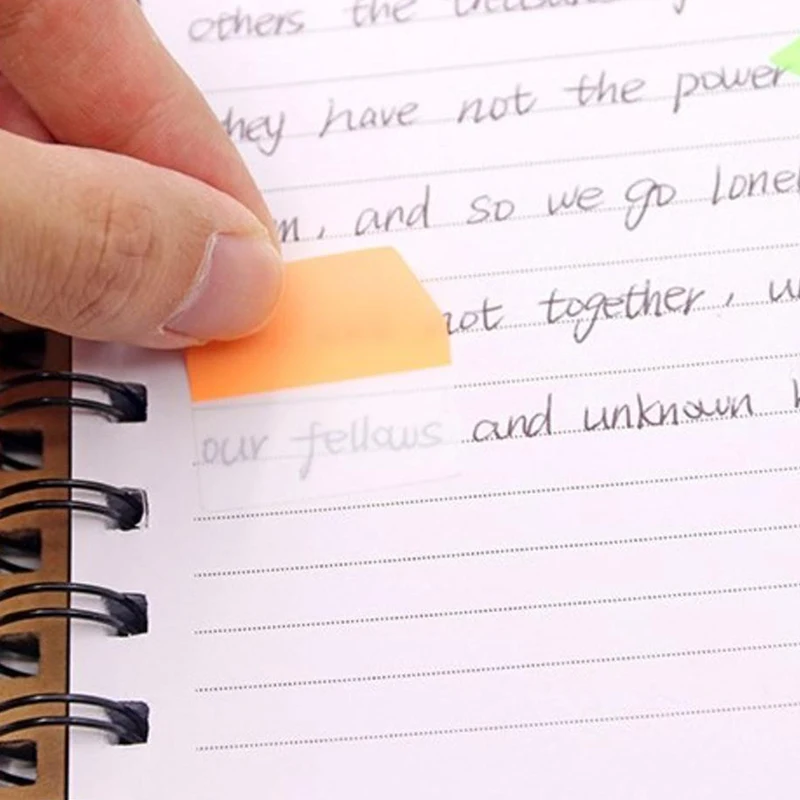 others the
hey have not the power
m, and so we go lonel
not together, u
our fellows and unknown